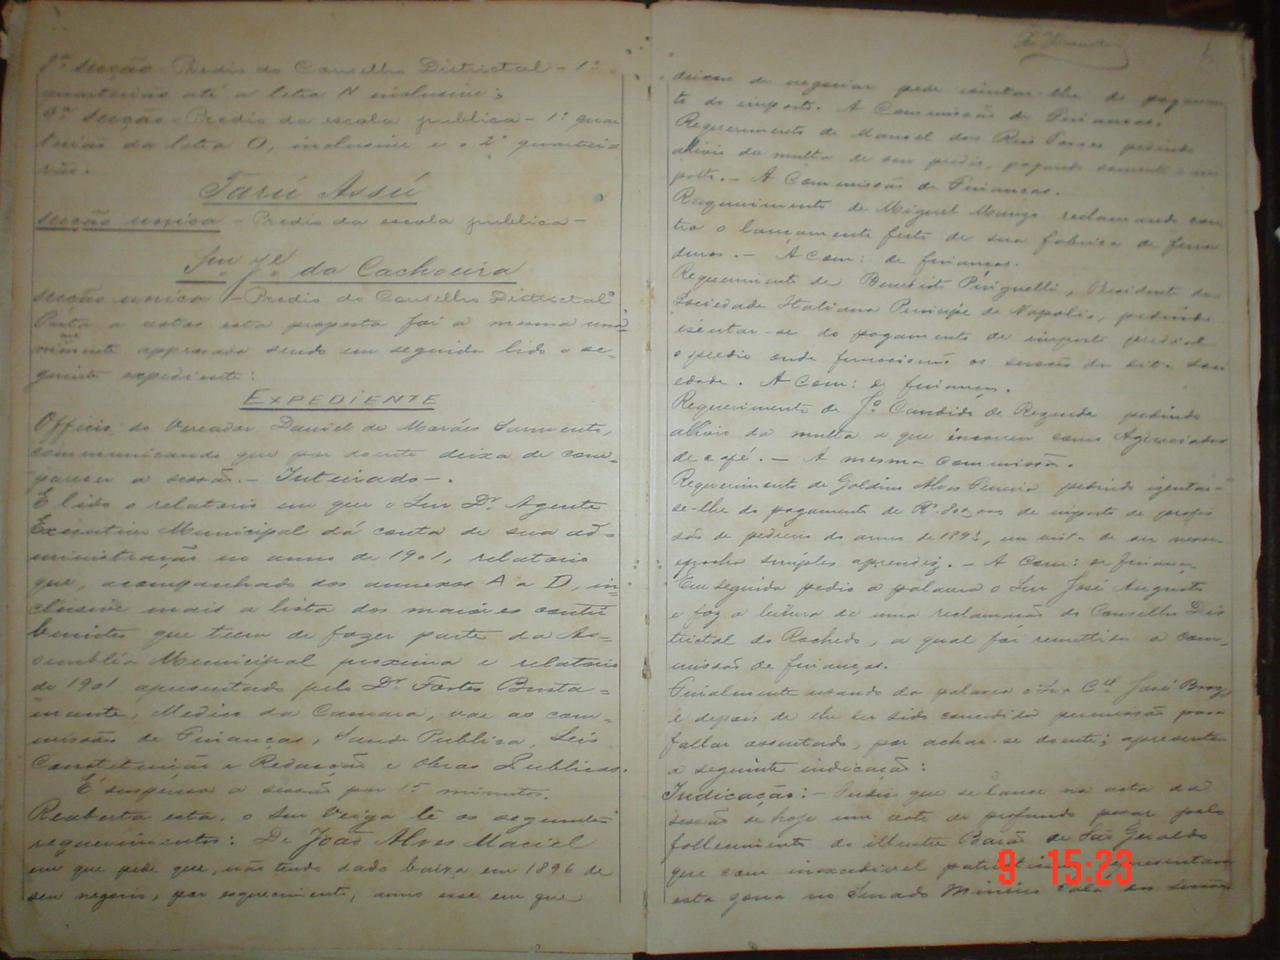 8ª secção - Predio do Conselho Districtal - 1º
quarteirão até a letra N inclusive;
9ª secção - Predio da escola publica - 1º quar
teirão da letra O, inclusive e o 2º quartei-
rão.
Tarú Assú
secção unica - Predio da escola publica -
Sm. Jé da Cachoeira
secção unica - Predio do Conselho Districtal
Posta a votos esta proposta foi a mesma una
nimimente approvada sendo em seguida lido o se-
guinte expediente:
EXPEDIENTE
Officio do Vereador Daniel de Moraes Sarmento,
communicando que por doente deixa de com-
parecer a sessão. - Inteirado -.
É lido o relatorio em que o Snr Dr. Agente
Executivo Municipal dá conta de sua ad-
ministração no anno de 1901, relatorio
que, acompanhado dos annexos A a D, in-
clusive mais a lista dos maiores contri
buintes que tem de fazer parte da As-
sembléa Municipal proxima e relatorio
de 1901 apresentado pelo Dr. Fortes Busta-
mante, Medico da Camara, vae as com-
missões de Finanças, Saude Publica, Leis
Constituição e Redacção e Obras Publicas.
É suspensa a sessão por 15 minutos.
Reaberta esta, o Snr Veiga lê os seguintes
requerimentos: De João Alves Maciel
em que pede que, não tendo dado baixa em 1896 de
seu negocio, por esquecimento, anno esse em que
deixou de negociar pede isentar-lhe do pagamen
to do imposto. A Commissão de Finanças.
Requerimento de Manoel dos Reis pedindo
allivio da multa de seu predio, pagando somente o im
posto. - A Commissão de Finanças.
Requerimento de Miguel Mango reclamando con
tra o lançamento feito de sua fabrica de ferra
duras. - A Com: de finanças.
Requerimento de Benedicto, Presidente da
Sociedade Italiana Principe de Napolis, pedindo
isentar-se do pagamento de imposto predial
o predio onde funccionão as sessões da dita soci
edade. A Com: de finanças.
Requerimento de Jº Candido de Rezende pedindo
allivio da multa a que incorreu como Agenciador
de café. - A mesma Commissão.
Requerimento de Goldino Alves Pereira pedindo izentar-
se-lhe do pagamento de de imposto de profis
são de pedreiro do anno de, em vista de ser nessa
epocha simples aprendiz. - A Com: de finanças
Em seguida pedio a palavra o Snr José Augusto
e faz a leitura de uma reclamação do Conselho Dis
trictal do Rochedo, a qual foi remettida a com-
missão de finanças.
Finalmente usando da palavra o Snr Cel José Braz
e depois de lhe ter sido concedida permissão para
fallar assentado, por achar-se doente; apresenta
a seguinte indicação:
Indicação: - Indico que se lance na acta da
sessão de hoje um voto de profundo pesar pelo
fallecimento do illustre Barão de São Geraldo
que com inexcedivel representava
esta zona no Senado Mineiro
9 15:23